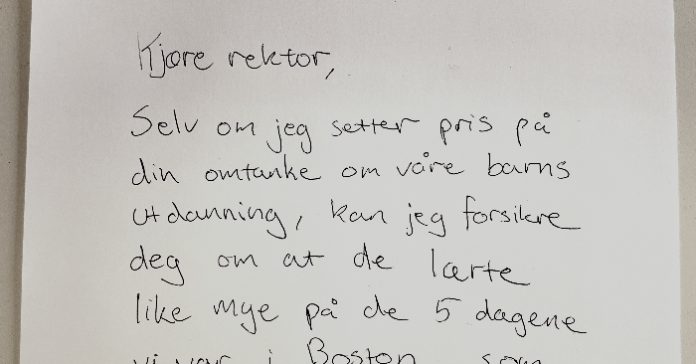 Kjøre rektor,
Selv om jeg setter pris på
din omtanke om våre barns
utdanning, kan jeg forsikre
deg om at de lærte
like mye på de 5 dagene
vi var i Boston som